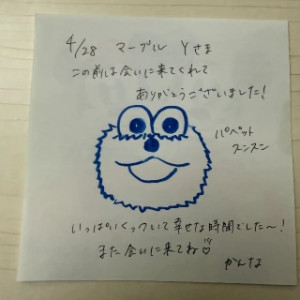 4/28 マーブル Yさま
この前は会いに来てくれて
ありがとうございました!
パペット
スンスン
いっぱいくっついて幸せな時間でした〜!
また会いに来てね♡
かんな